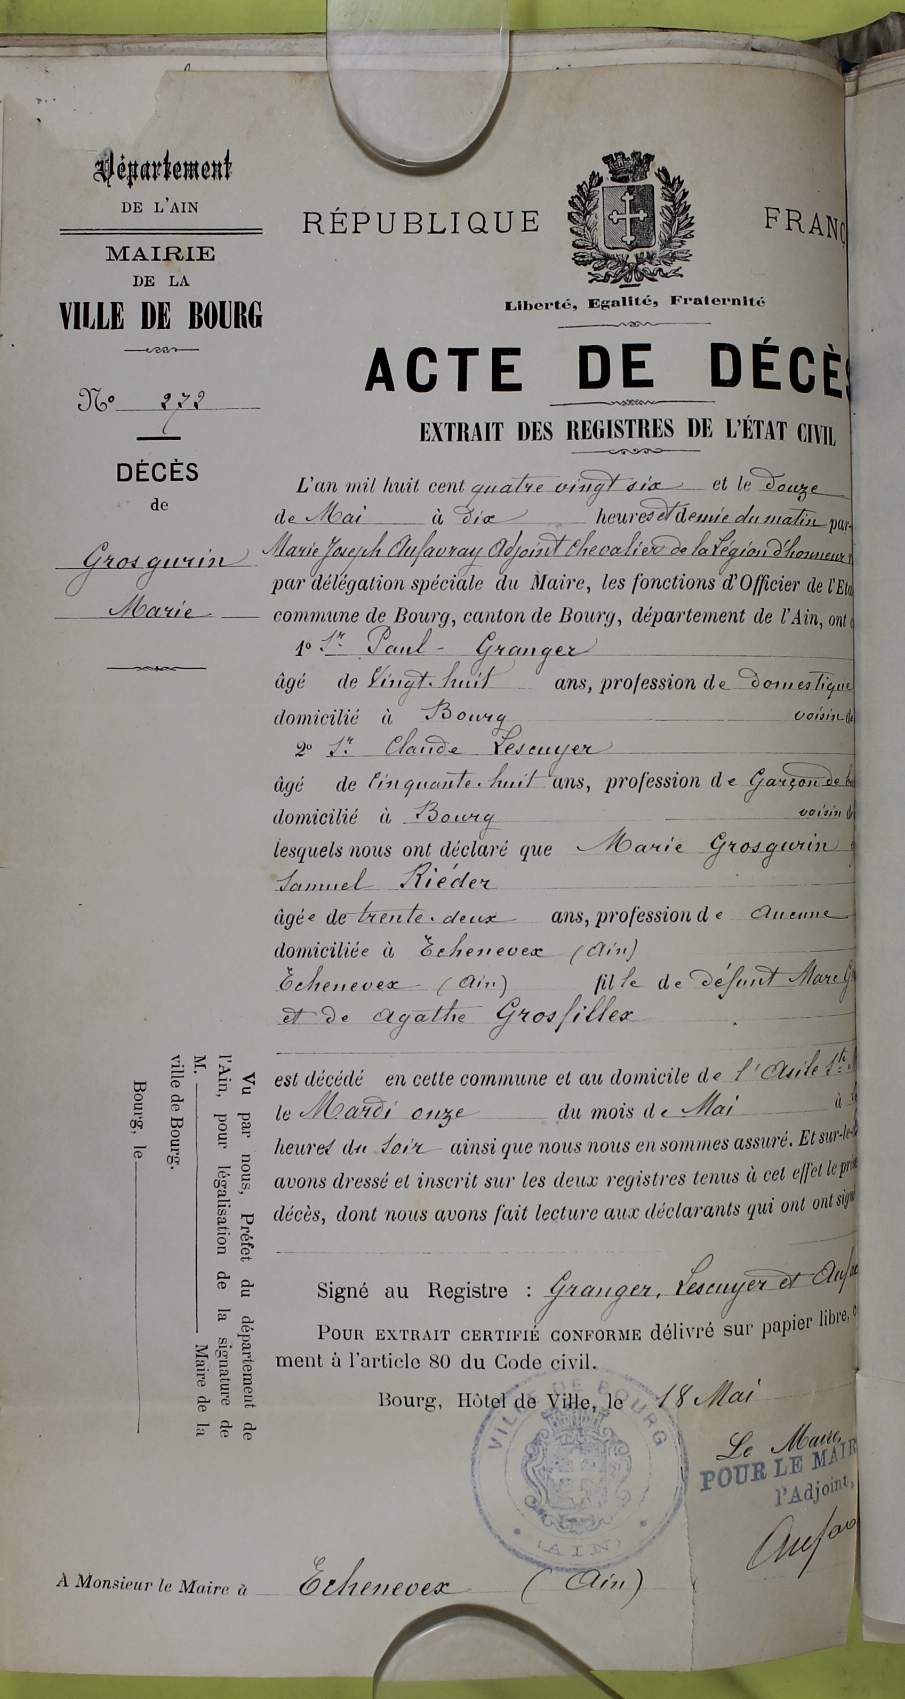 Département
DE L'AIN
MAIRIE
DE LA
VILLE DE BOURG
No 272
DÉCÈS
de
Grosgurin
Marie
RÉPUBLIQUE FRANÇ
Liberté, Egalité, Fraternité
ACTE DE DÉCÈS
EXTRAIT DES REGISTRES DE L'ÉTAT CIVIL
L'an mil huit cent quatre vingt six et le Douze
de Mai à Dix heures et demie du matin par-
Marie Joseph Aufavray Adjoint Chevalier de la Légion d'honneur
par délégation spéciale du Maire, les fonctions d'Officier de l'Eta
commune de Bourg, canton de Bourg, département de l'Ain, ont
1º Sr Paul - Granger
âgé de Vingt-huit ans, profession de Domestique
domicilié à Bourg voisin de
2º Sr Claude Lescuyer
âgé de Cinquante-huit ans, profession de Garçon de
domicilié à Bourg voisin d
lesquels nous ont déclaré que Marie Grosgurin
Samuel Riéder
âgée de trente-deux ans, profession de Aucune
domiciliée à Echenevex (Ain)
Echenevex (Ain) fille de défunt Marc G
et de Agathe Grosfillex
est décédé en cette commune et au domicile de l'Asile Ste
le Mardi onze du mois de Mai à
heures du soir ainsi que nous nous en sommes assuré. Et sur-le-
avons dressé et inscrit sur les deux registres tenus à cet effet le pré
décès, dont nous avons fait lecture aux déclarants qui ont ont signé
Signé au Registre : Granger, Lescuyer et Aufa
POUR EXTRAIT CERTIFIÉ CONFORME délivré sur papier libre, c
ment à l'article 80 du Code civil.
Bourg, Hôtel de Ville, le 18 Mai
VILLE DE BOURG
(AIN)
Le Maire,
POUR LE MAIR
l'Adjoint,
Aufav
Vu par nous, Préfet du département de
l'Ain, pour légalisation de la signature de
M. Maire de la
ville de Bourg.
Bourg, le
A Monsieur le Maire à Echenevex (Ain)